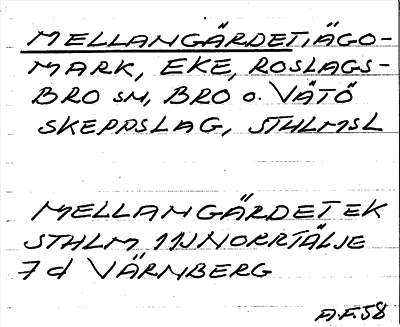 MELLANGÄRDET, ÄGO-
MARK, EKE, ROSLAGS-
BRO SN, BRO o. VÄTÖ
SKEPPSLAG, STHLMSL
MELLANGÄRDET EK
STHLM 11J NORRTÄLJE
7d VÄRNBERG
A.F. 58